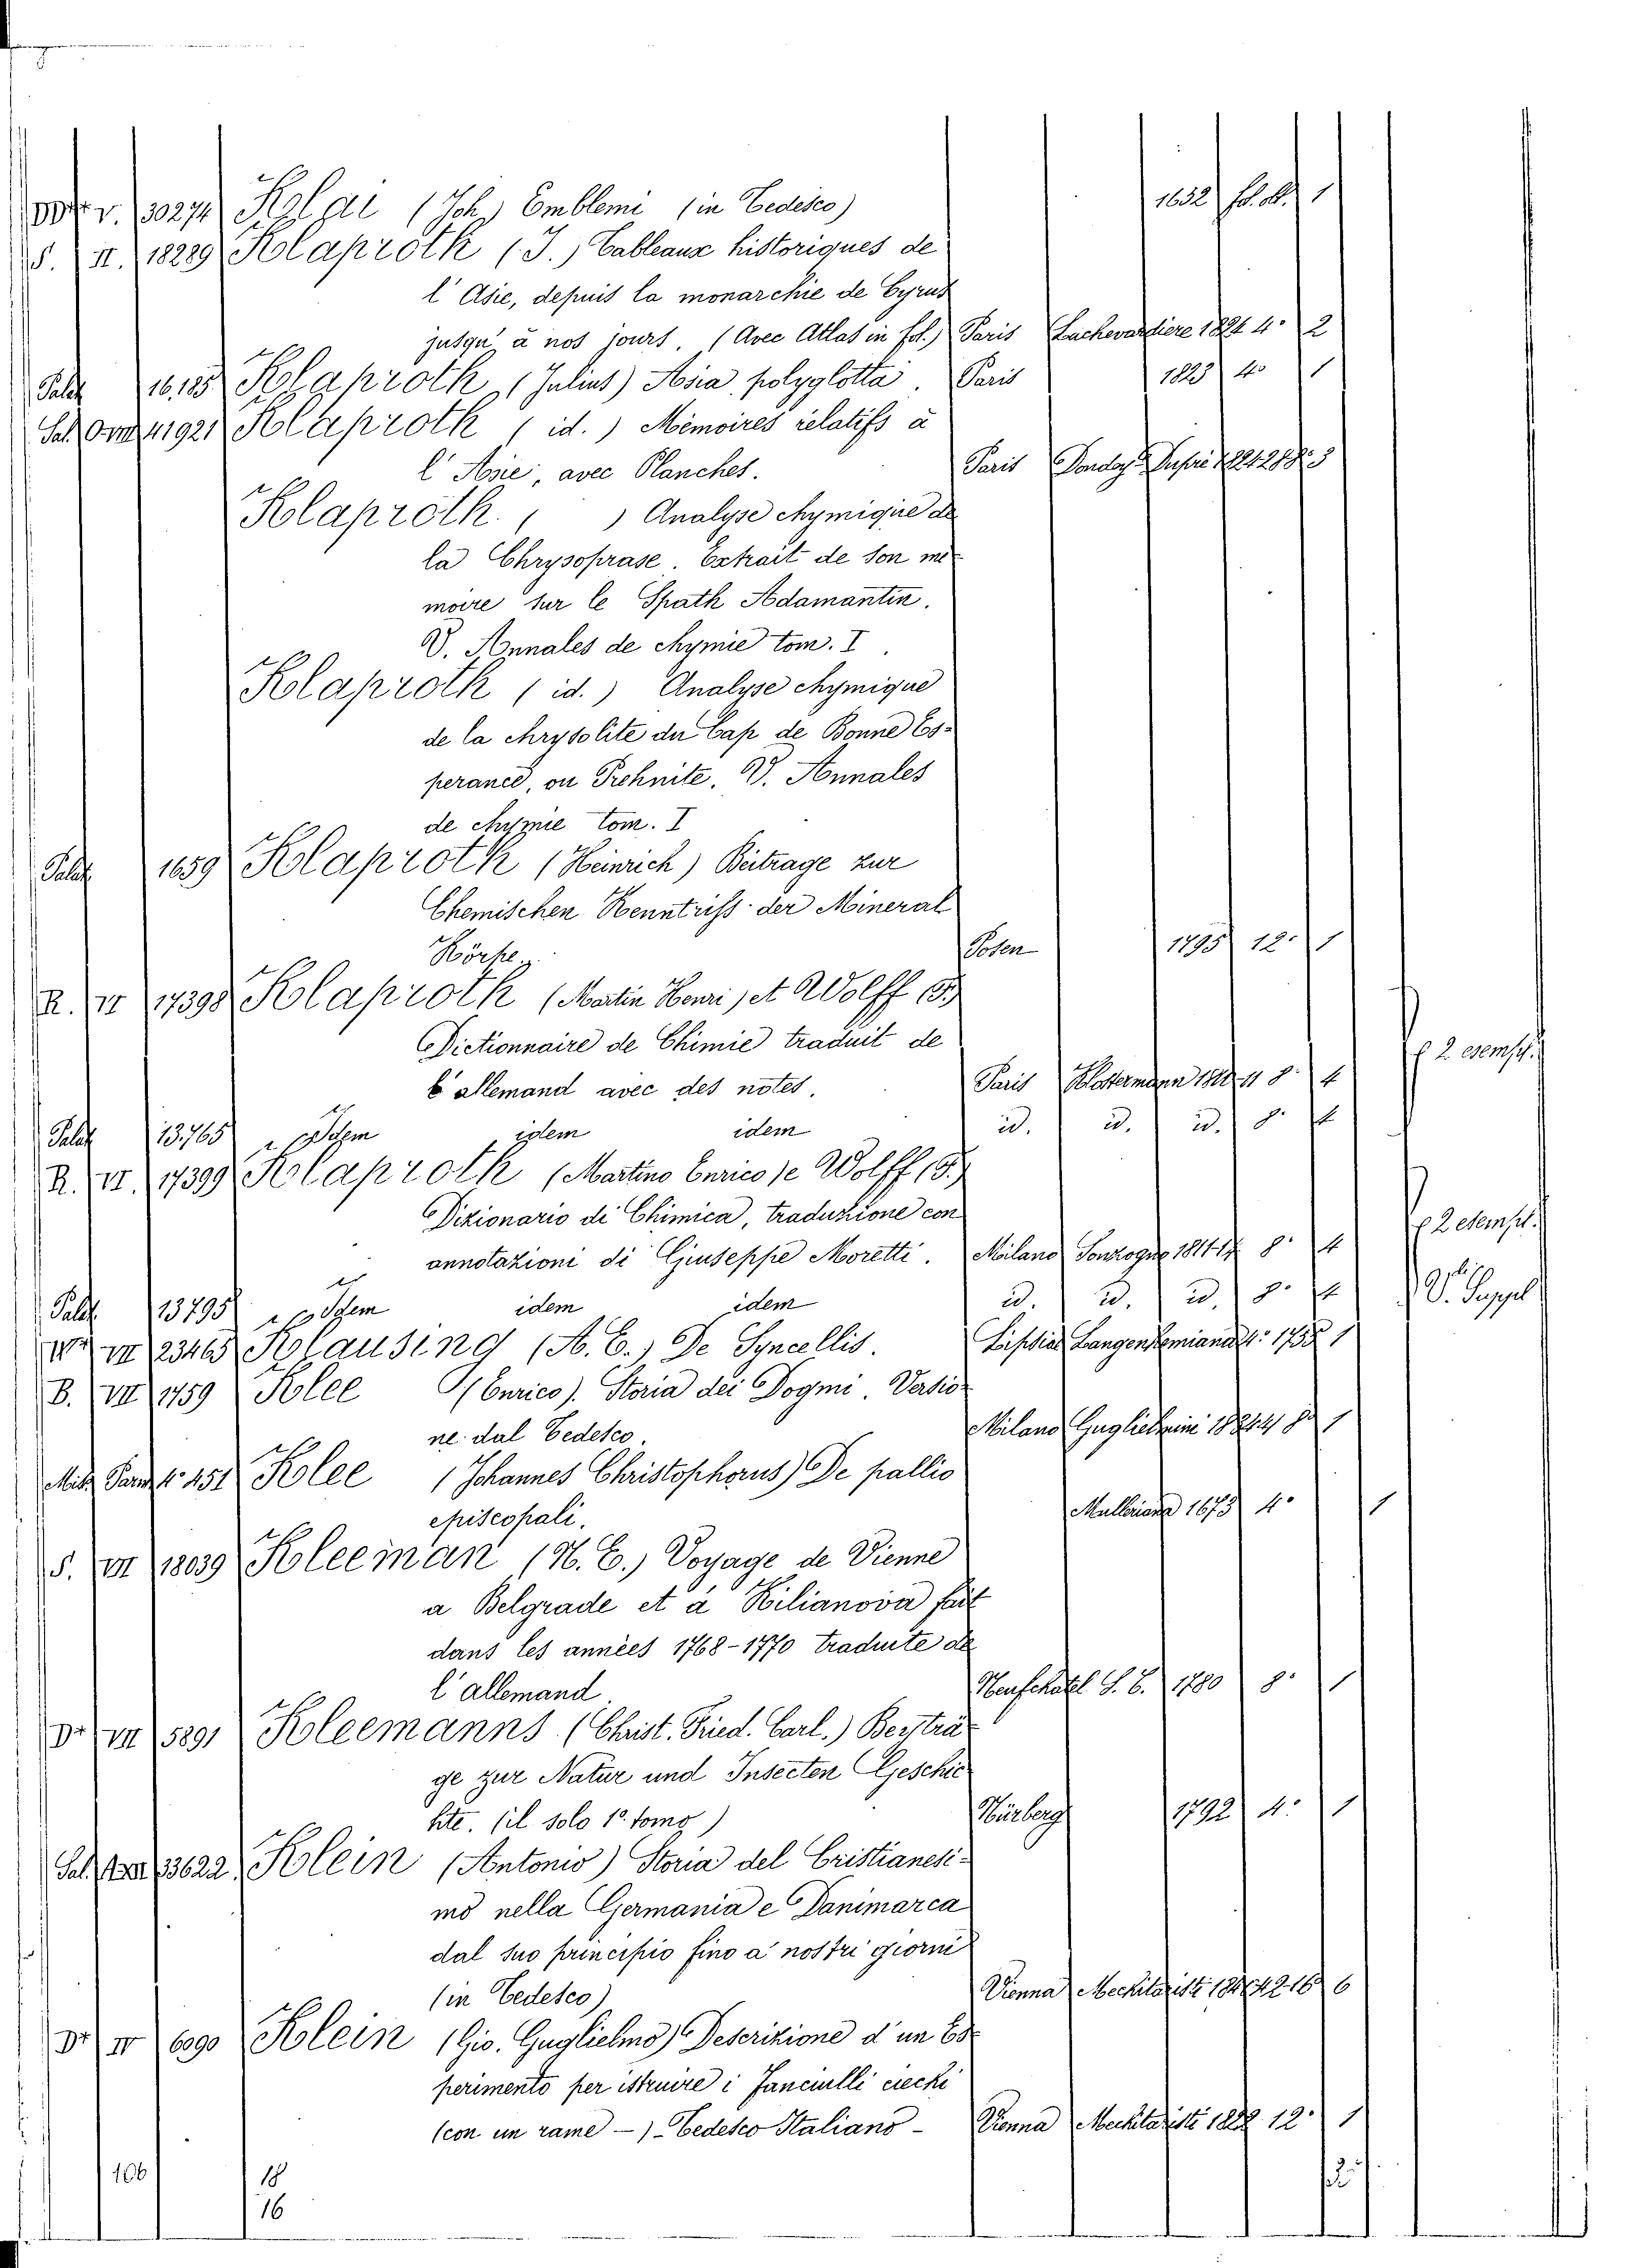 V. 30274 Klai (Joh.) Emblemi (in Tedesco) 1652 fol. ob. 1
S. II. 18229 Klaproth (J.) Tableaux historiques de
l'Asie, depuis la monarchie de Cyrus
jusqu'à nos jours. (Avec Atlas in fol.) Paris Lachevardiere 1826 4° 2
Palat. 16,185 Klaproth (Julius) Asia polyglotta. Paris 1823 4° 1
41921 Klaproth (id.) Mémoires relatifs à
l'Asie, avec Planches. Paris Dondey Dupré 1824 28 8° 3
Klaproth. ( ) Analyse chymique de
la Chrysoprase. Extrait de son me
moire sur le Spath Adamantin.
V. Annales de chymie tom. I.
Klaproth (id.) Analyse chymique
de la chrysolite du Cap de Bonne Es-
perance, ou Prehnite. V. Annales
de chymie tom. I
Palat. 1659 Klaproth (Heinrich) Beitrage zur
Chemischen Kenntniss der Mineral
Körper. Posen 1795 12° 1
R. VI 17398 Klaproth (Martin Henri) et Wolff (F.)
Dictionnaire de Chimie traduit de
l'allemand avec des notes. Paris Klostermann 1810 11 8° 4
p 2 esempl.
Palat. 13,765 Idem idem idem id. id. id. 8° 4
R. VI. 17399 Klaproth (Martino Enrico) e Wolff (F.)
Dizionario di Chimica, traduzione con
annotazioni di Giuseppe Moretti. Milano Sonzogno 1811 14 8° 4
p 2 esempl.
Palat. 13795 Idem idem idem id. id. id. 8° 4
V. Suppl
VII 23465 Klausing (A. E.) De Syncellis. Lipsiae Langenhemiana 4° 1738 1
B. VII 1759 Klee (Enrico). Storia dei Dogmi. Versio-
ne dal Tedesco. Milano Guglielmini 8° 1
451 Klee (Johannes Christophorus) De pallio
episcopali. Mulleriana 1673 4° 1
S. VII 18039 Kleeman (N. E.) Voyage de Vienne
a Belgrade et à Kilianova fait
dans les années 1768-1770 traduite de
l'allemand. Neufchatel S. T. 1780 8° 1
VII 5891 Kleemanns (Christ. Fried. Carl.) Beyträ
ge zur Natur und Insecten Geschic
hte. (il solo 1° tomo) Nürberg 1792 4° 1
33622 Klein (Antonio) Storia del Cristianesi-
mo nella Germania e Danimarca
dal suo principio fino a' nostri giorni
(in Tedesco) Vienna Mechitaristi 6
IV 6090 Klein (Gio. Guglielmo) Descrizione d'un Es
perimento per istruire i fanciulli ciechi
(con un rame -) - Tedesco Italiano - Vienna Mechitaristi 1822 12° 1
106 18
16